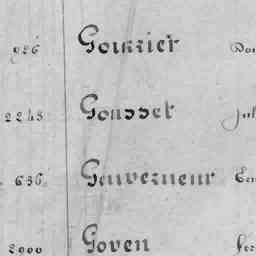 926 Gourrier
2245 Gousset
636 Gouverneur
2900 Goven